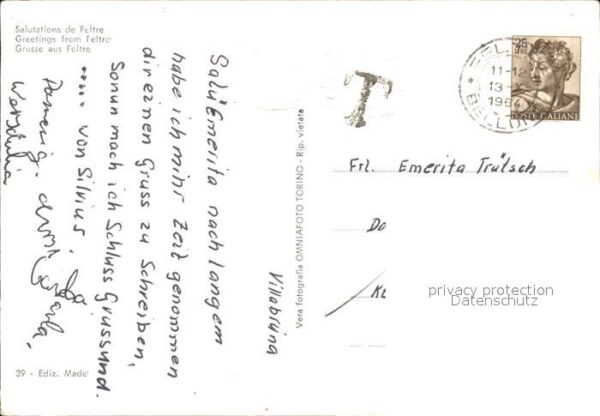 Salutations de Feltre
Greetings from Feltre
Grüsse aus Feltre
Salü Emerita nach langem
habe ich mihr Zeit genommen
dir einen Gruss zu Schreiben,
Sonun mach ich Schluss Grüssund.
..... von Silvius.
39 - Ediz. Made
Villabruna
Vera fotografia OMNIAFOTO TORINO - Rip. vietata
T
11-12
13-
1964
BELLUNO
25
LIRE
POSTE ITALIANE
Frl. Emerita Trütsch
Do
Kl
privacy protection
Datenschutz